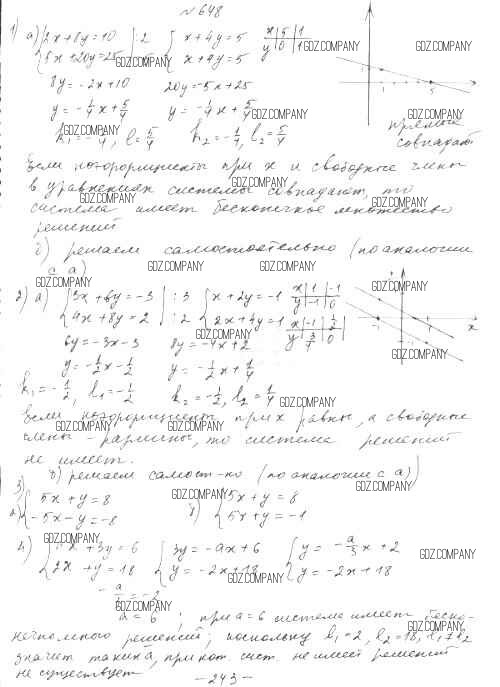 №648
1) а) {2x+8y=10 | :2 {x+4y=5 x|5|1
{5x+20y=25 | :5 {x+4y=5 y|0|1
8y=-2x+10 20y=-5x+25
y=-1/4x+5/4 y=-1/4x+5/4
k₁=-1/4, l=5/4 k₂=-1/4, l₂=5/4 прямые
совпадают
Если коэффициенты при x и свободные члены
в уравнениях системы совпадают, то
система имеет бесконечное множество
решений
б) решаем самостоятельно (по аналогии
с а)
2) а) {3x+6y=-3 | :3 {x+2y=-1 x|1|-1
{4x+8y=2 | :2 {2x+4y=1 y|-1|0
6y=-3x-3 8y=-4x+2
y=-1/2x-1/2 y=-1/2x+1/4
k₁=-1/2, l₁=-1/2 k₂=-1/2, l₂=1/4
Если коэффициенты при x равны, а свободные
члены - различны, то система решений
не имеет.
б) решаем самост-но (по аналогии с а)
3)
а) {5x+y=8 б) {5x+y=8
{-5x-y=-8 {5x+y=-1
4) {ax+3y=6 {3y=-ax+6 {y=-a/3x+2
{2x+y=18 {y=-2x+18 {y=-2x+18
-a/3=-2
a=6 ; при a=6 система имеет беско-
нечно много решений; поскольку l₁=2, l₂=18, l₁≠l₂
значит таких а, при кот. сист. не имеет решений
не существует
-243-
GDZ.COMPANY